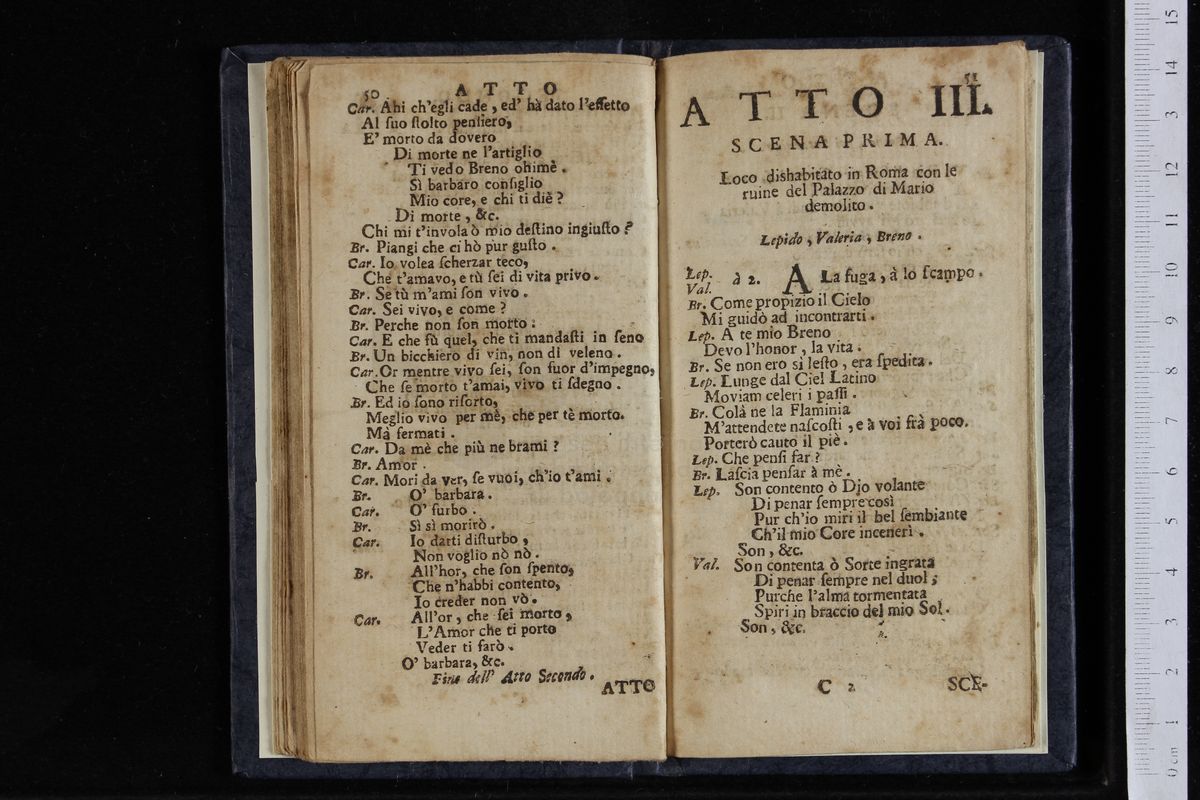 50 ATTO
Car. Ahi ch'egli cade, ed' hà dato l'effetto
Al ſuo ſtolto penſiero,
E' morto da dovero
Di morte ne l'artiglio
Ti vedo Breno ohimè.
Sì barbaro conſiglio
Mio core, e chi ti diè?
Di morte, &c.
Chi mi t'invola ò mio deſtino ingiuſto?
Br. Piangi che ci hò pur guſto.
Car. Io volea ſcherzar teco,
Che t'amavo, e tù ſei di vita privo.
Br. Se tù m'ami ſon vivo.
Car. Sei vivo, e come?
Br. Perche non ſon morto:
Car. E che fù quel, che ti mandaſti in ſeno
Br. Un bicchiero di vin, non di veleno.
Car. Or mentre vivo ſei, ſon fuor d'impegno,
Che ſe morto t'amai, vivo ti ſdegno.
Br. Ed io ſono riſorto,
Meglio vivo per mè, che per tè morto.
Mà fermati.
Car. Da mè che più ne brami?
Br. Amor.
Car. Mori da ver, ſe vuoi, ch'io t'ami.
Br. O' barbara.
Car. O' furbo.
Br. Sì sì morirò.
Car. Io darti diſturbo,
Non voglio nò nò.
Br. All'hor, che ſon ſpento,
Che n'habbi contento,
Io creder non vò.
Car. All'or, che ſei morto,
L'Amor che ti porto
Veder ti farò.
O' barbara, &c.
Fine dell' Atto Secondo.
ATTO
51
ATTO III.
SCENA PRIMA.
Loco dishabitato in Roma con le
ruine del Palazzo di Mario
demolito.
Lepido, Valeria, Breno.
Lep.
Val. à 2. A La fuga, à lo ſcampo.
Br. Come propizio il Cielo
Mi guidò ad incontrarti.
Lep. A te mio Breno
Devo l'honor, la vita.
Br. Se non ero sì leſto, era ſpedita.
Lep. Lunge dal Ciel Latino
Moviam celeri i paſſi.
Br. Colà ne la Flaminia
M'attendete naſcoſti, e à voi frà poco.
Porterò cauto il piè.
Lep. Che penſi far?
Br. Laſcia penſar à mè.
Lep. Son contento ò Dio volante
Di penar ſempre così
Pur ch'io miri il bel ſembiante
Ch'il mio Core inceneri.
Son, &c.
Val. Son contenta ò Sorte ingrata
Di penar ſempre nel duol;
Purche l'alma tormentata
Spiri in braccio del mio Sol.
Son, &c.
C 2 SCE-
0 cm 1 2 3 4 5 6 7 8 9 10 11 12 13 14 15